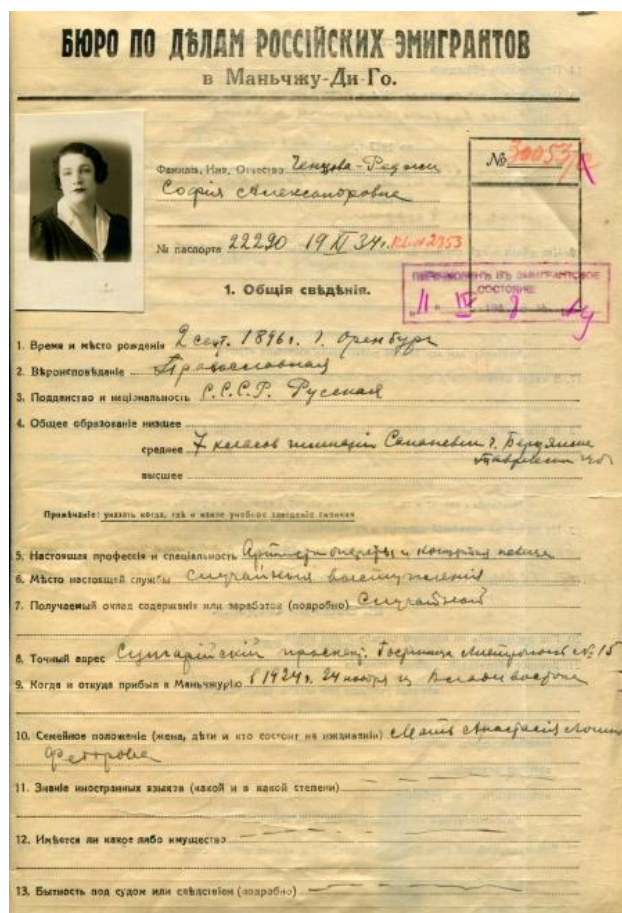 БЮРО ПО ДѢЛАМ РОССІЙСКИХ ЭМИГРАНТОВ
в Маньчжу-Ди-Го.
№ 30053/
Фамилія, Имя, Отчество Ченцова-Реджи
Софія Александровна
№ паспорта 22290 19 XI 34г. 2353
ПЕРЕЧИСЛЕНЪ ВЪ ЭМИГРАНТСКОЕ
СОСТОЯНІЕ
1. Общія свѣдѣнія.
1. Время и мѣсто рожденія 2 сент. 1896г. г. Оренбург
2. Вѣроисповѣданіе Православная
3. Подданство и національность С.С.С.Р. Русская
4. Общее образованіе низшее
среднее 7 классов гимназіи г. Бердянск
высшее
Примѣчаніе: указать когда, гдѣ и какое учебное заведеніе окончил
5. Настоящая профессія и спеціальность Артистка оперетты и концертная певица
6. Мѣсто настоящей службы Случайныя выступленія
7. Получаемый оклад содержанія или заработок (подробно) Случайной
8. Точный адрес Сунгарійскій проспект. Гостиница Метрополь № 15
9. Когда и откуда прибыл в Маньчжурію в 1924г. 24 ноября из Владивостока
10. Семейное положеніе (жена, дѣти и кто состоит на иждивеніи) Мать Анастасія
11. Знаніе иностранных языков (какой и в какой степени)
12. Имѣется ли какое либо имущество
13. Бытность под судом или слѣдствіем (подробно)